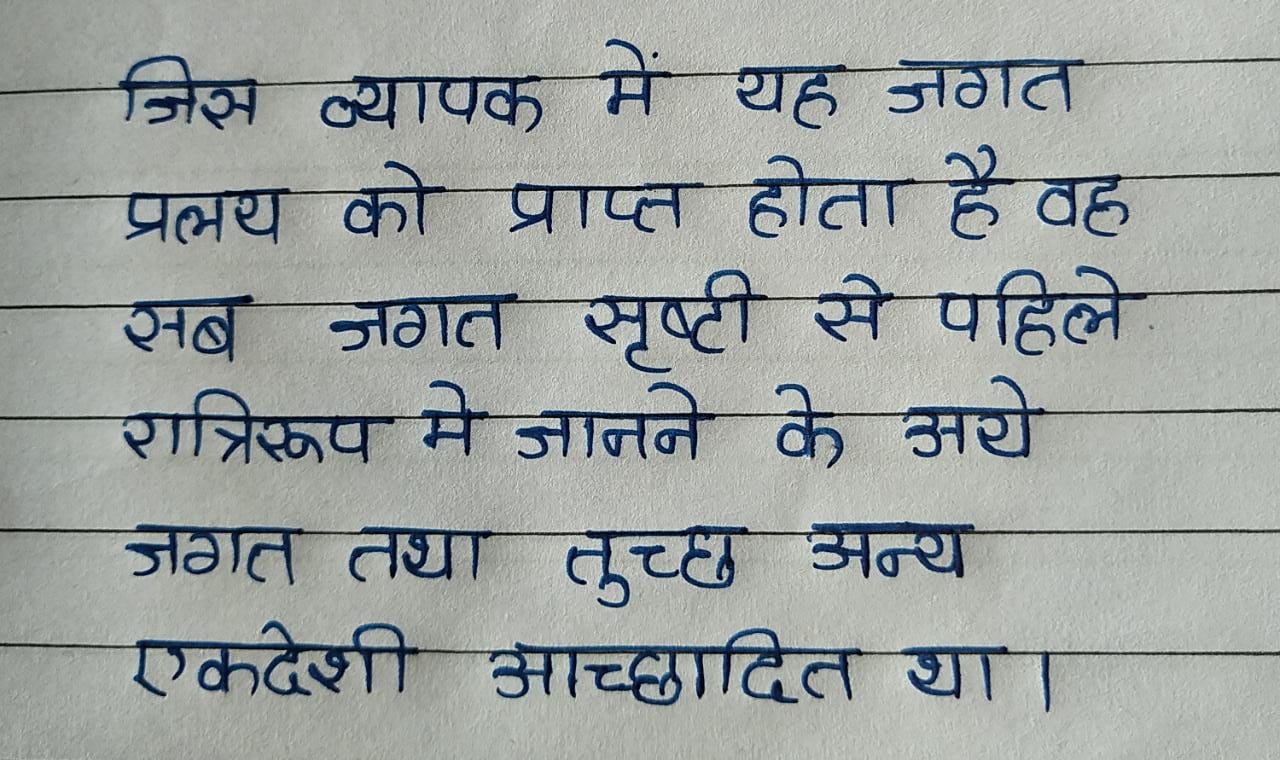 जिस व्यापक में यह जगत
प्रलय को प्राप्त होता है वह
सब जगत सृष्टी से पहिले
रात्रिरूप मे जानने के अये
जगत तथा तुच्छ अन्य
एकदेशी आच्छादित था।